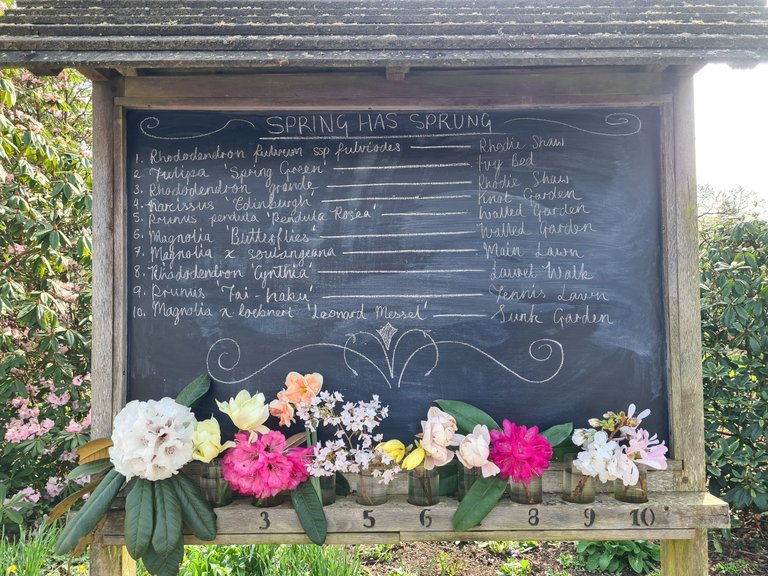 SPRING HAS SPRUNG
1. Rhododendron fulvum ssp fulvoides Rhodie Shaw
2 Tulipa 'Spring Green' Ivy Bed
3. Rhododendron grande Rhodie Shaw
4. Narcissus 'Edinburgh' Knot Garden
5. Prunus pendula 'Pendula Rosea' Walled Garden
6. Magnolia 'Butterflies' Walled Garden
7. Magnolia x soulangeana Main Lawn
8. Rhododendron 'Cynthia' Laurel Walk
9. Prunus 'Tai-haku' Tennis Lawn
10. Magnolia x loebneri 'Leonard Messel' Sunk Garden
3 5 6 8 9 10